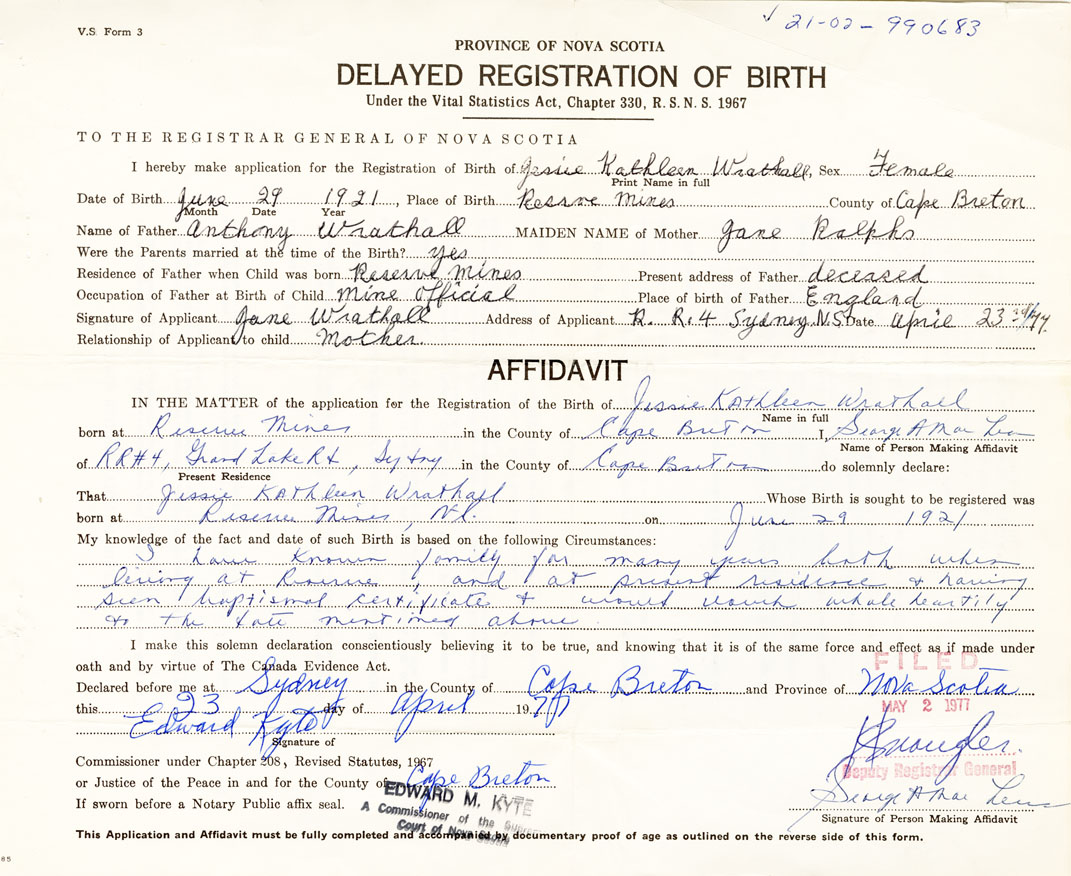 V.S. Form 3
✓ 21-02-990683
PROVINCE OF NOVA SCOTIA
DELAYED REGISTRATION OF BIRTH
Under the Vital Statistics Act, Chapter 330, R.S.N.S. 1967
TO THE REGISTRAR GENERAL OF NOVA SCOTIA
I hereby make application for the Registration of Birth of Jessie Kathleen Wrathall, Sex Female
Print Name in full
Date of Birth June 29 1921, Place of Birth Resrve Mines County of Cape Breton
Month Date Year
Name of Father Anthony Wrathall MAIDEN NAME of Mother Jane Ralphs
Were the Parents married at the time of the Birth? yes
Residence of Father when Child was born Reserve Mines Present address of Father deceased
Occupation of Father at Birth of Child Mine Official Place of birth of Father England
Signature of Applicant Jane Wrathall Address of Applicant R. R. 4 Sydney N.S. Date April 23
Relationship of Applicant to child Mother.
AFFIDAVIT
IN THE MATTER of the application for the Registration of the Birth of Jessie Kathleen Wrathall
Name in full
born at Reserve Mines in the County of Cape Breton I, George A Mac
Name of Person Making Affidavit
of RR#4, Grand Lake Rd, Sydney in the County of Cape Breton do solemnly declare:
Present Residence
That Jessie Kathleen Wrathall Whose Birth is sought to be registered was
born at Reserve Mines, N.S. on June 29 1921
My knowledge of the fact and date of such Birth is based on the following Circumstances:
I have known family for many years both when
living at Reserve, and at present residence & having
seen baptismal certificate & would vouch whole heartily
to the date mentioned above
I make this solemn declaration conscientiously believing it to be true, and knowing that it is of the same force and effect as if made under
oath and by virtue of The Canada Evidence Act.
FILED
Declared before me at Sydney in the County of Cape Breton and Province of Nova Scotia
this 23 day of April 1977
MAY 2 1977
Edward Kyte
Signature of
Commissioner under Chapter 208, Revised Statutes, 1967
Deputy Registrar General
or Justice of the Peace in and for the County of Cape Breton
EDWARD M. KYTE
If sworn before a Notary Public affix seal.
A Commissioner of the Supreme
Court of Nova Scotia
George A Mac
Signature of Person Making Affidavit
This Application and Affidavit must be fully completed and accompanied by documentary proof of age as outlined on the reverse side of this form.
85